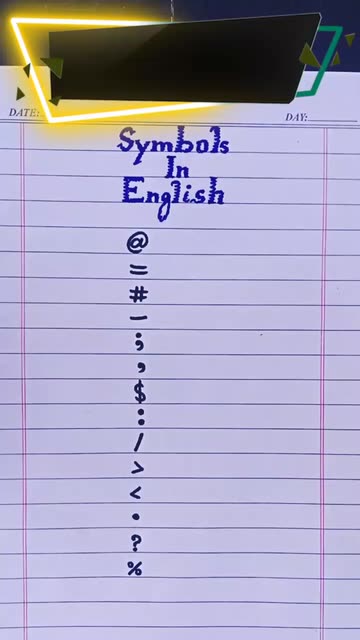 DATE:
DAY:
Symbols
In
English
@
=
#
–
;
,
$
:
/
>
<
.
?
%